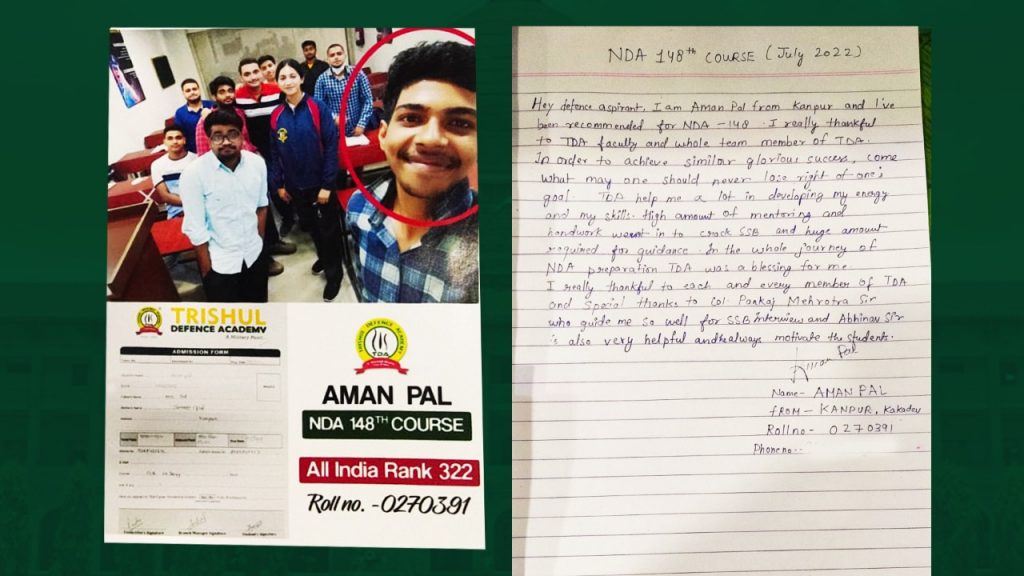 TRISHUL
DEFENCE ACADEMY
A Military Point...
ADMISSION FORM
TRISHUL DEFENCE ACADEMY
TDA
AMAN PAL
NDA 148TH COURSE
All India Rank 322
Roll no. -0270391
NDA 148th COURSE (July 2022)
Hey defence aspirant, I am Aman Pal from Kanpur and I've
been recommended for NDA -148. I really thankful
to TDA faculty and whole team member of TDA.
In order to achieve similar glorious success, come
what may one should never lose right of one's
goal. TDA help me a lot in developing my energy
and my skills. High amount of mentoring and
hardwork went in to crack SSB and huge amount
required for guidance. In the whole journey of
NDA preparation TDA was a blessing for me
I really thankful to each and every member of TDA
and Special thanks to Col. Pankaj Mehrotra Sir
who guide me so well for SSB interview and Abhinav Sir
is also very helpful and always motivate the students.
Aman Pal
Name- AMAN PAL
FROM- KANPUR, Kakadev
Roll no- 0270391
Phone no-